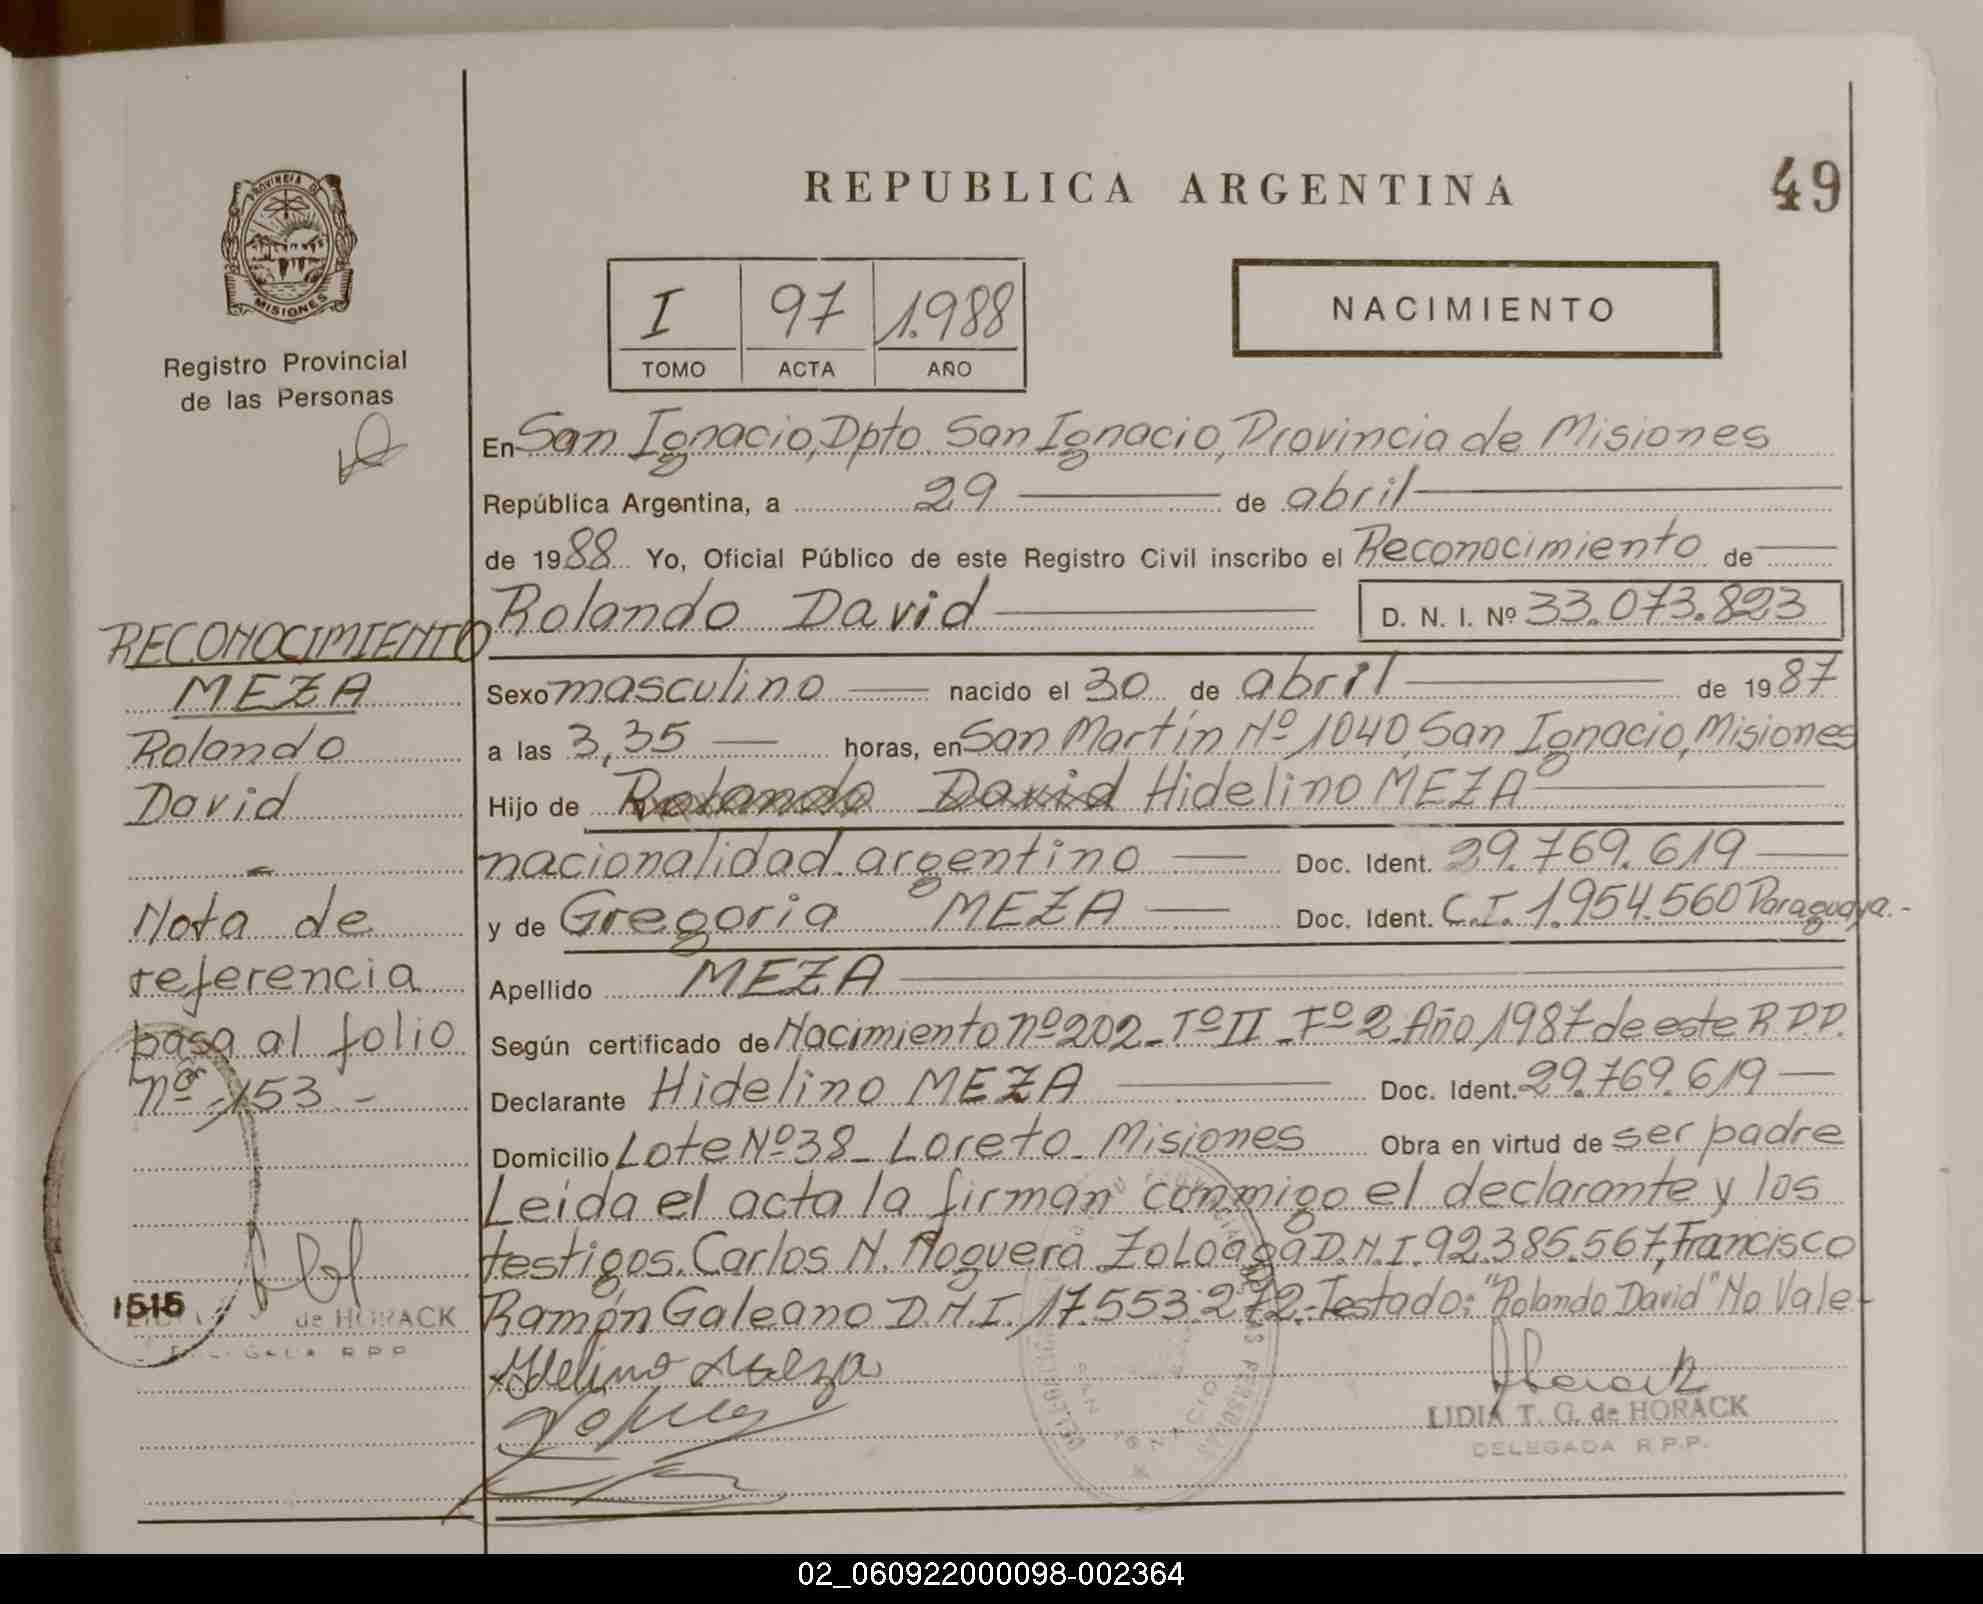 REPUBLICA ARGENTINA
49
PROVINCIA DE
MISIONES
Registro Provincial
de las Personas
I 97 1.988
TOMO ACTA AÑO
NACIMIENTO
En San Ignacio, Dpto. San Ignacio, Provincia de Misiones
República Argentina, a 29 de abril
de 1988 Yo, Oficial Público de este Registro Civil inscribo el Reconocimiento de
Rolando David
D. N. I. Nº 33.073.823
Sexo masculino nacido el 30 de abril de 1987
a las 3,35 horas, en San Martín Nº 1040, San Ignacio, Misiones
Hijo de Rolando David Hidelino MEZA
nacionalidad argentino Doc. Ident. 29.769.619
y de Gregoria MEZA Doc. Ident. C.I. 1.954.560 Paraguaya.-
Apellido MEZA
Según certificado de Nacimiento nº 202_Tº II_Fº 2_Año 1987 de este R.P.P.
Declarante Hidelino MEZA Doc. Ident. 29.769.619
Domicilio Lote Nº 38_ Loreto_ Misiones Obra en virtud de ser padre
Leida el acta la firman conmigo el declarante y los
testigos. Carlos N. Noguera Zoloaga D.N.I. 92.385.567, Francisco
Ramón Galeano D.N.I. 17.553.272.-Testado: "Rolando David" No Vale-
RECONOCIMIENTO
MEZA
Rolando
David
Nota de
referencia
pasa al folio
nº 153.-
1515
de HORACK
R P P
Idelino Meza
LIDIA T. G. de HORACK
DELEGADA R.P.P.
SAN IGNACIO
02_060922000098-002364